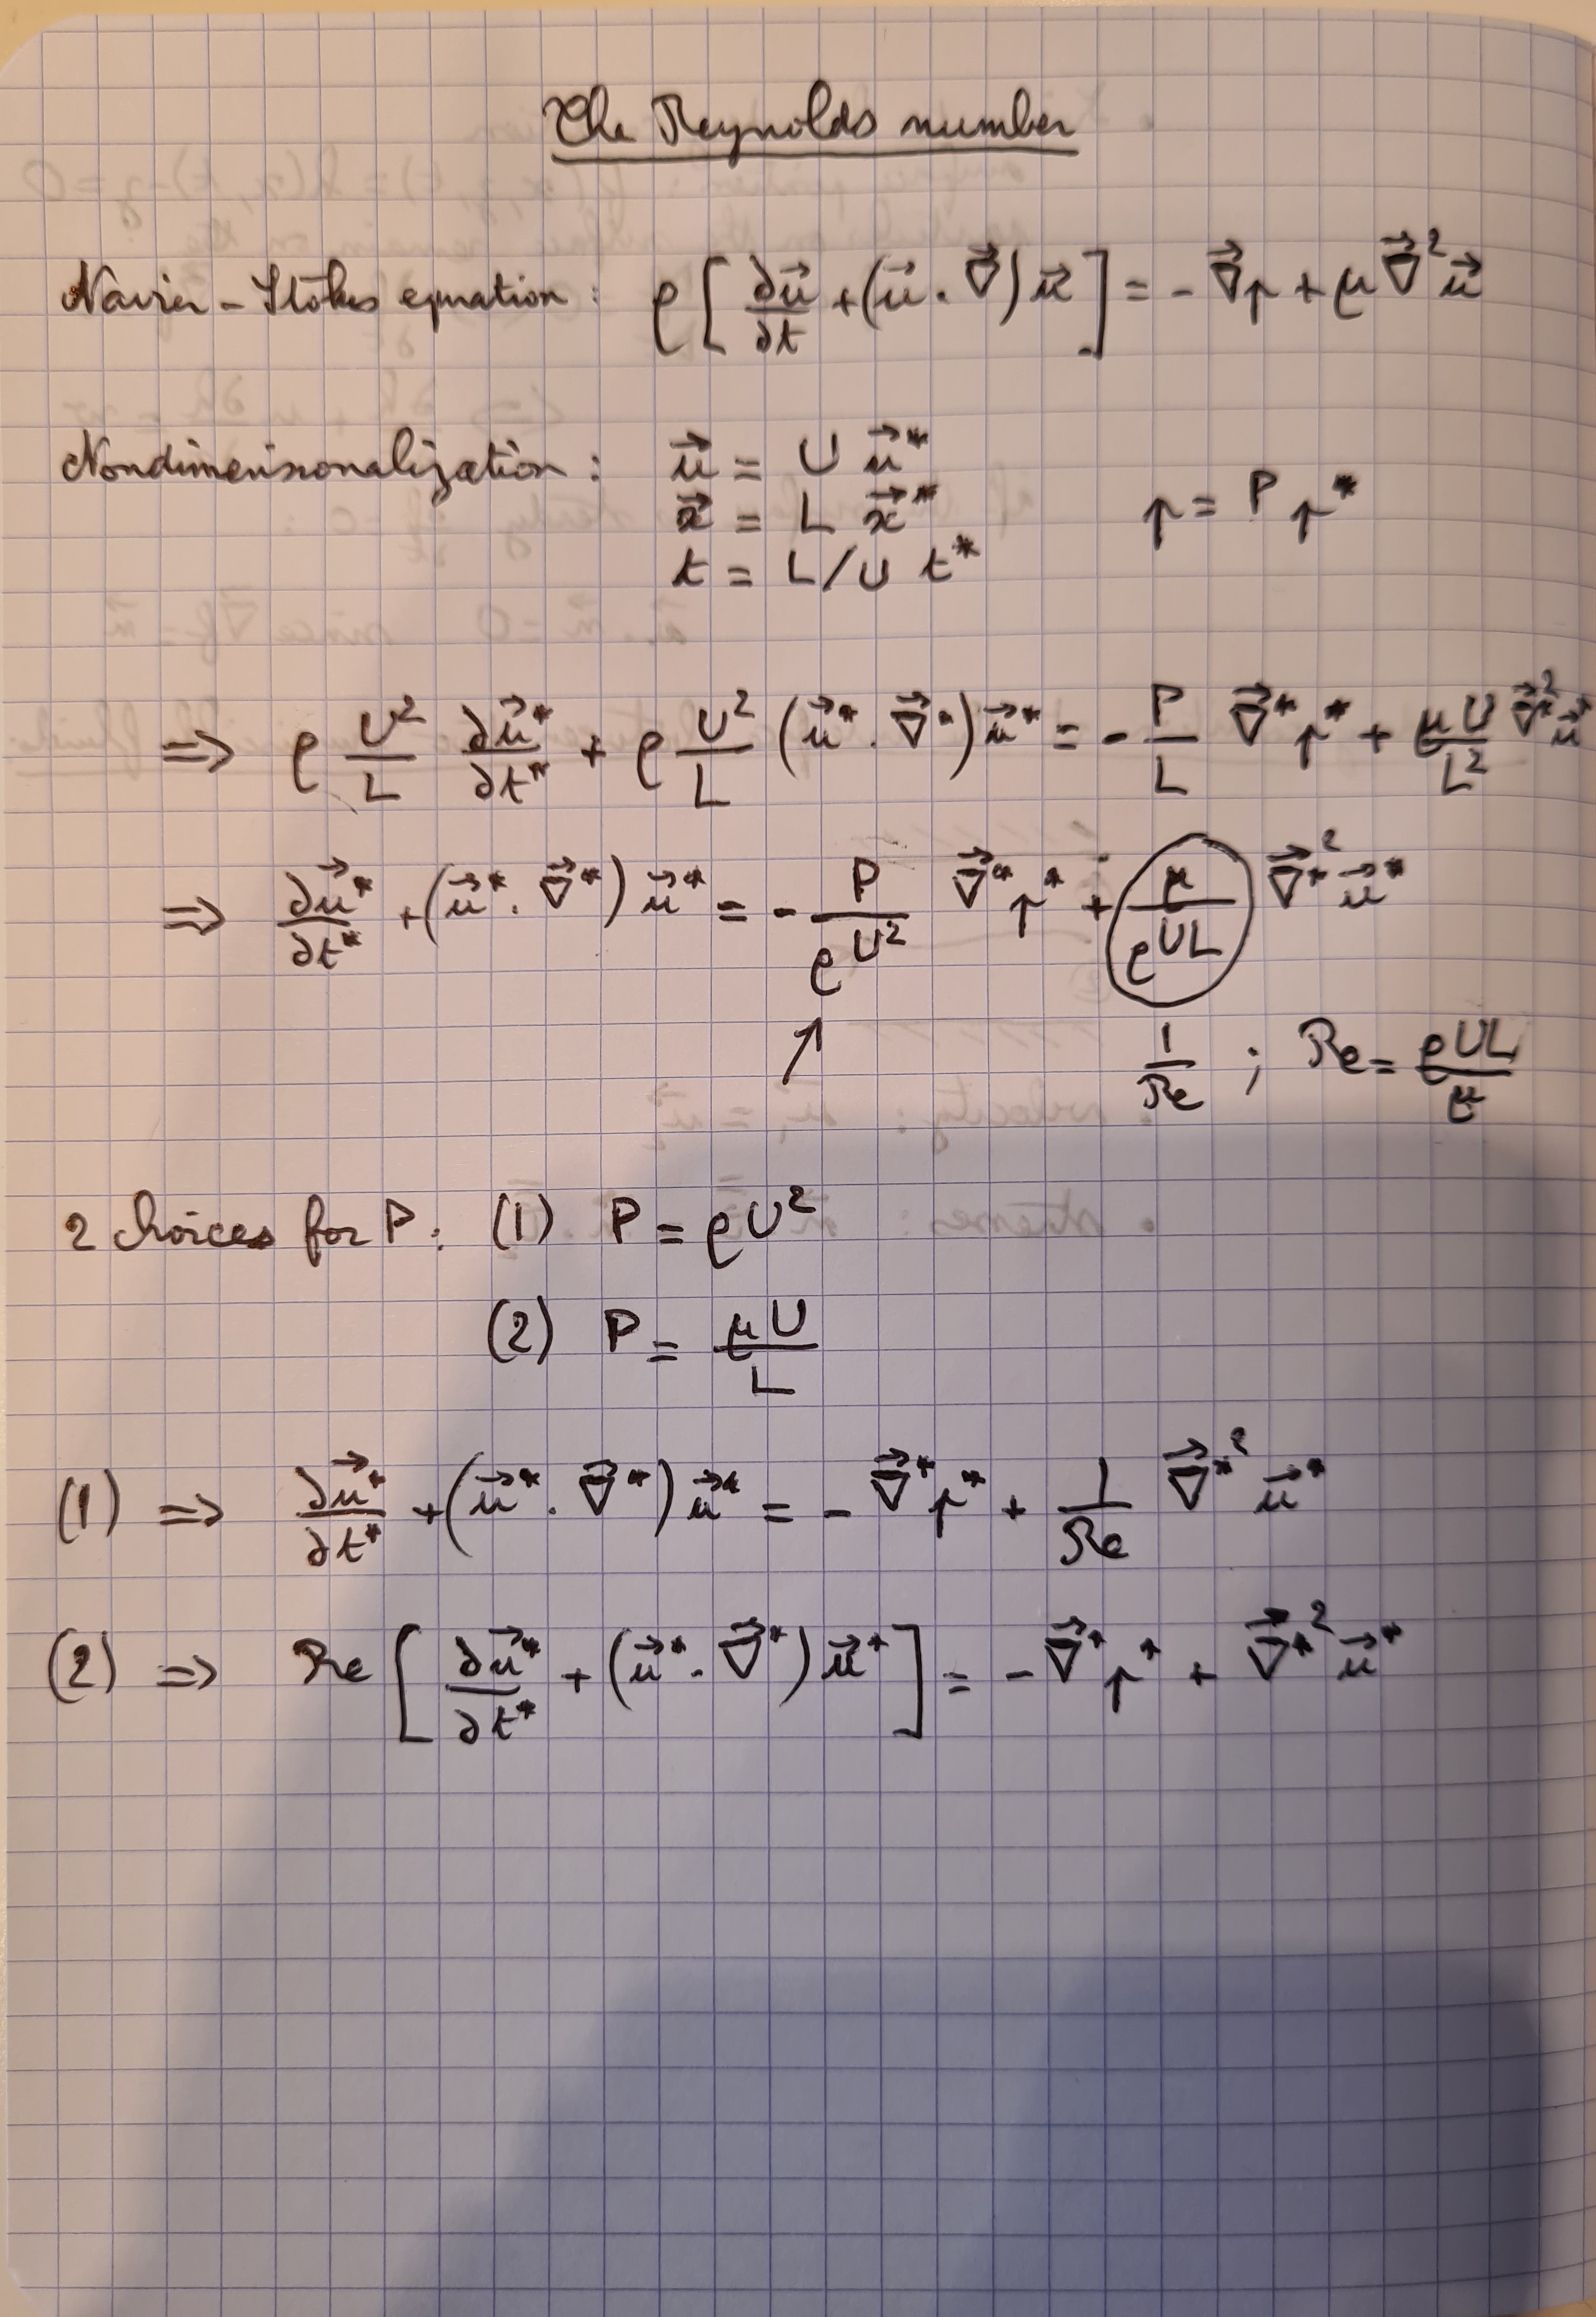 The Reynolds number
Navier-Stokes equation : ρ[∂u⃗/∂t + (u⃗ . ∇⃗) u⃗] = - ∇⃗p + μ ∇⃗² u⃗
Nondimensionalization : u⃗ = U u⃗*
x⃗ = L x⃗* p = P p*
t = L/U t*
=> ρ U²/L ∂u⃗*/∂t* + ρ U²/L (u⃗* . ∇⃗*) u⃗* = - P/L ∇⃗* p* + μU/L² ∇⃗*² u⃗*
=> ∂u⃗*/∂t* + (u⃗* . ∇⃗*) u⃗* = - P/ρU² ∇⃗* p* + μ/ρUL ∇⃗*² u⃗*
↗ 1/Re ; Re = ρUL/μ
2 choices for P : (1) P = ρU²
(2) P = μU/L
(1) => ∂u⃗*/∂t* + (u⃗* . ∇⃗*) u⃗* = - ∇⃗* p* + 1/Re ∇⃗*² u⃗*
(2) => Re [∂u⃗*/∂t* + (u⃗* . ∇⃗*) u⃗*] = - ∇⃗* p* + ∇⃗*² u⃗*